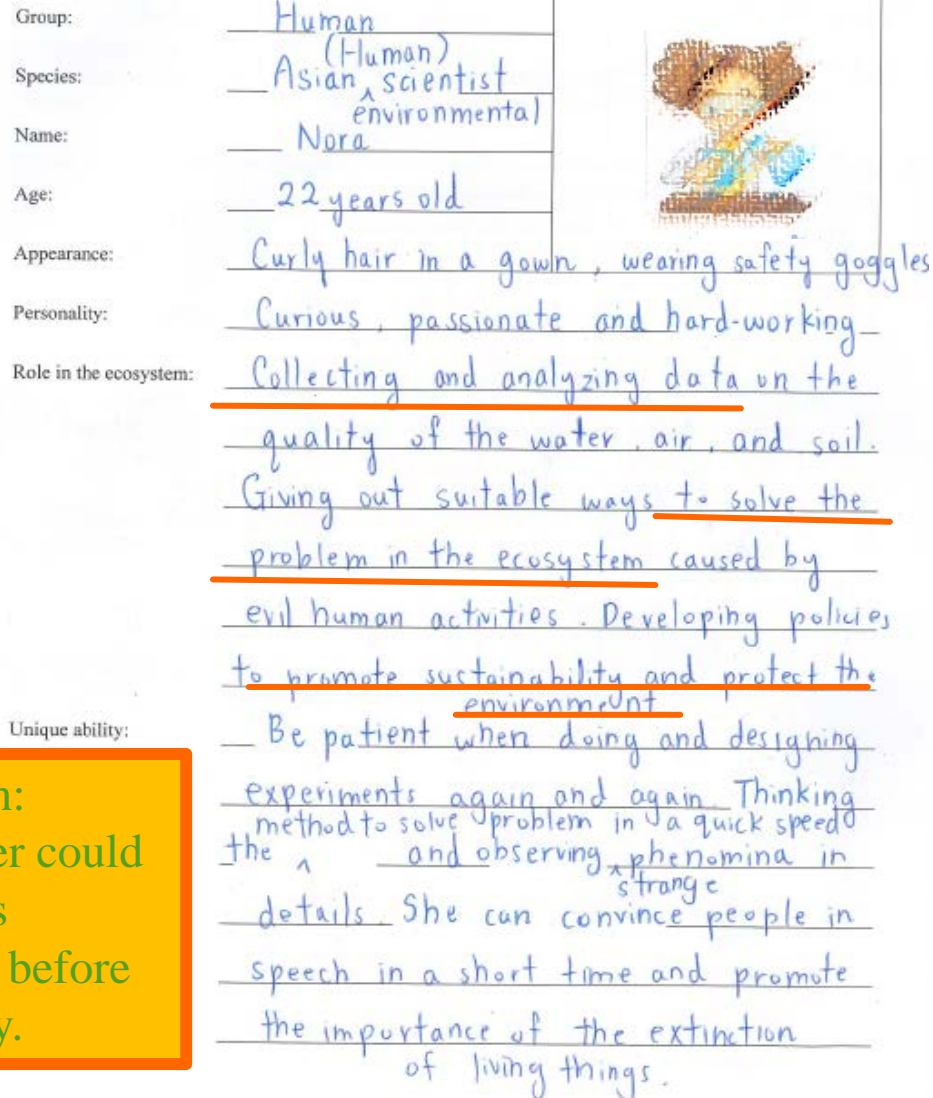 Group: Human
(Human)
Species: Asian ^ scientist
environmental
Name: Nora
Age: 22 years old
Appearance: Curly hair in a gown, wearing safety goggles
Personality: Curious, passionate and hard-working
Role in the ecosystem: Collecting and analyzing data on the
quality of the water, air, and soil.
Giving out suitable ways to solve the
problem in the ecosystem caused by
evil human activities. Developing policies
to promote sustainability and protect the
environment
Unique ability: Be patient when doing and designing
experiments again and again. Thinking
method to solve problem in a quick speed
the ^ and observing ^ phenomina in
strange
details. She can convince people in
speech in a short time and promote
the importance of the extinction
of living things.
er could
before